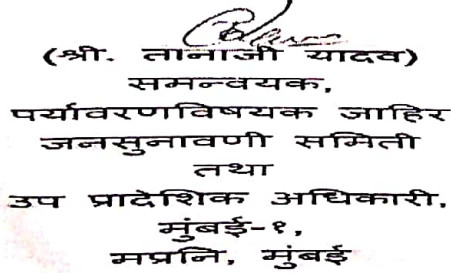 (श्री. तानाजी यादव)
समन्वयक,
पर्यावरणविषयक जाहिर
जनसुनावणी समिती
तथा
उप प्रादेशिक अधिकारी,
मुंबई-१,
मप्रनि, मुंबई